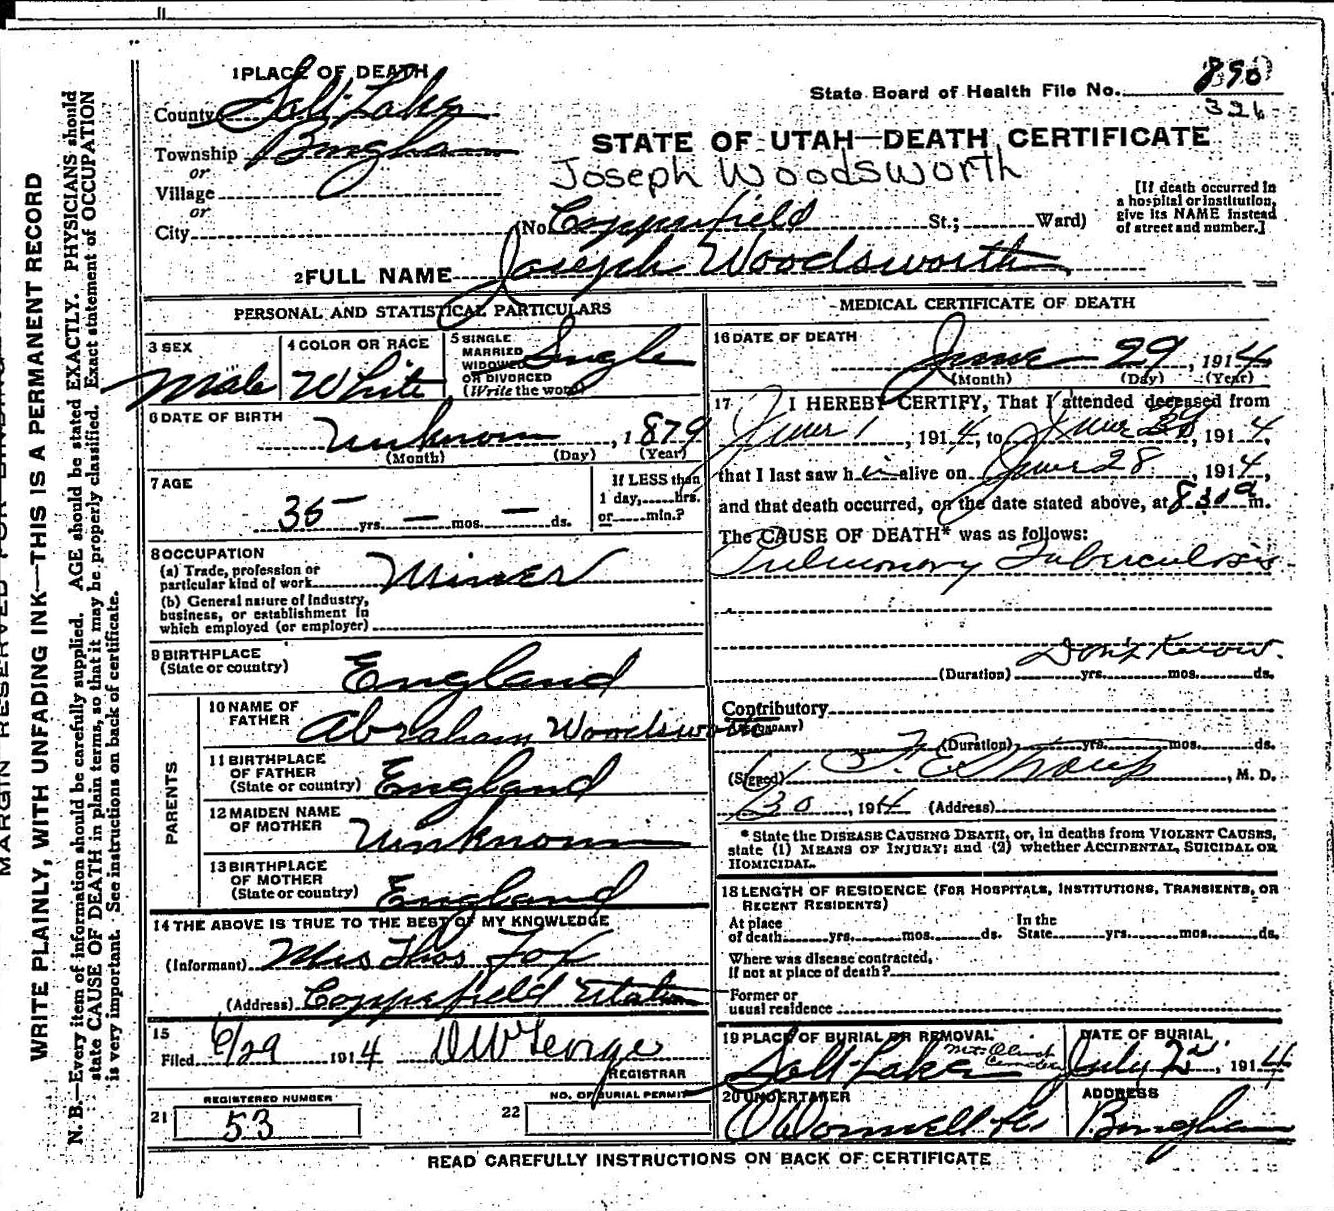 1 PLACE OF DEATH
County Salt Lake
Township Bingham
or
Village
or
City
State Board of Health File No. 890
326
STATE OF UTAH—DEATH CERTIFICATE
Joseph Woodsworth
(No. Copperfield St.; Ward)
[If death occurred in
a hospital or institution,
give its NAME instead
of street and number.]
2 FULL NAME Joseph Woodsworth
PERSONAL AND STATISTICAL PARTICULARS
3 SEX
Male
4 COLOR OR RACE
White
5 SINGLE
MARRIED
WIDOWED
OR DIVORCED
(Write the word)
Single
6 DATE OF BIRTH
Unknown, 1879
(Month) (Day) (Year)
7 AGE
35 yrs. — mos. — ds.
If LESS than
1 day, hrs.
or min.?
8 OCCUPATION
(a) Trade, profession or
particular kind of work Miner
(b) General nature of industry,
business, or establishment in
which employed (or employer)
9 BIRTHPLACE
(State or country)
England
PARENTS
10 NAME OF
FATHER
Abraham Woodsworth
11 BIRTHPLACE
OF FATHER
(State or country) England
12 MAIDEN NAME
OF MOTHER
Unknown
13 BIRTHPLACE
OF MOTHER
(State or country) England
14 THE ABOVE IS TRUE TO THE BEST OF MY KNOWLEDGE
(Informant) Mrs Thos Fox
(Address) Copperfield Utah
15
Filed 6/29 1914 D W George
REGISTRAR
REGISTERED NUMBER
21 53
NO. OF BURIAL PERMIT
22
MEDICAL CERTIFICATE OF DEATH
16 DATE OF DEATH
June 29, 1914
(Month) (Day) (Year)
17 I HEREBY CERTIFY, That I attended deceased from
June 1, 1914, to June, 1914,
that I last saw him alive on June 28, 1914,
and that death occurred, on the date stated above, at 830 a m.
The CAUSE OF DEATH* was as follows:
Pulmonary Tuberculosis
Don't Know.
(Duration) yrs. mos. ds.
Contributory
(SECONDARY)
(Duration) yrs. mos. ds.
(Signed) F. E. Straup, M. D.
6/30, 1914 (Address)
* State the DISEASE CAUSING DEATH, or, in deaths from VIOLENT CAUSES,
state (1) MEANS OF INJURY; and (2) whether ACCIDENTAL, SUICIDAL OR
HOMICIDAL.
18 LENGTH OF RESIDENCE (FOR HOSPITALS, INSTITUTIONS, TRANSIENTS, OR
RECENT RESIDENTS)
At place
of death yrs. mos. ds.
In the
State yrs. mos. ds.
Where was disease contracted,
if not at place of death?
Former or
usual residence
19 PLACE OF BURIAL OR REMOVAL
Salt Lake Mt. Olivet
DATE OF BURIAL
July 2, 1914
20 UNDERTAKER
O'Donnell Co
ADDRESS
Bingham
READ CAREFULLY INSTRUCTIONS ON BACK OF CERTIFICATE
MARGIN RESERVED FOR BINDING
WRITE PLAINLY, WITH UNFADING INK—THIS IS A PERMANENT RECORD
N. B.—Every item of information should be carefully supplied. AGE should be stated EXACTLY. PHYSICIANS should
state CAUSE OF DEATH in plain terms, so that it may be properly classified. Exact statement of OCCUPATION
is very important. See instructions on back of certificate.